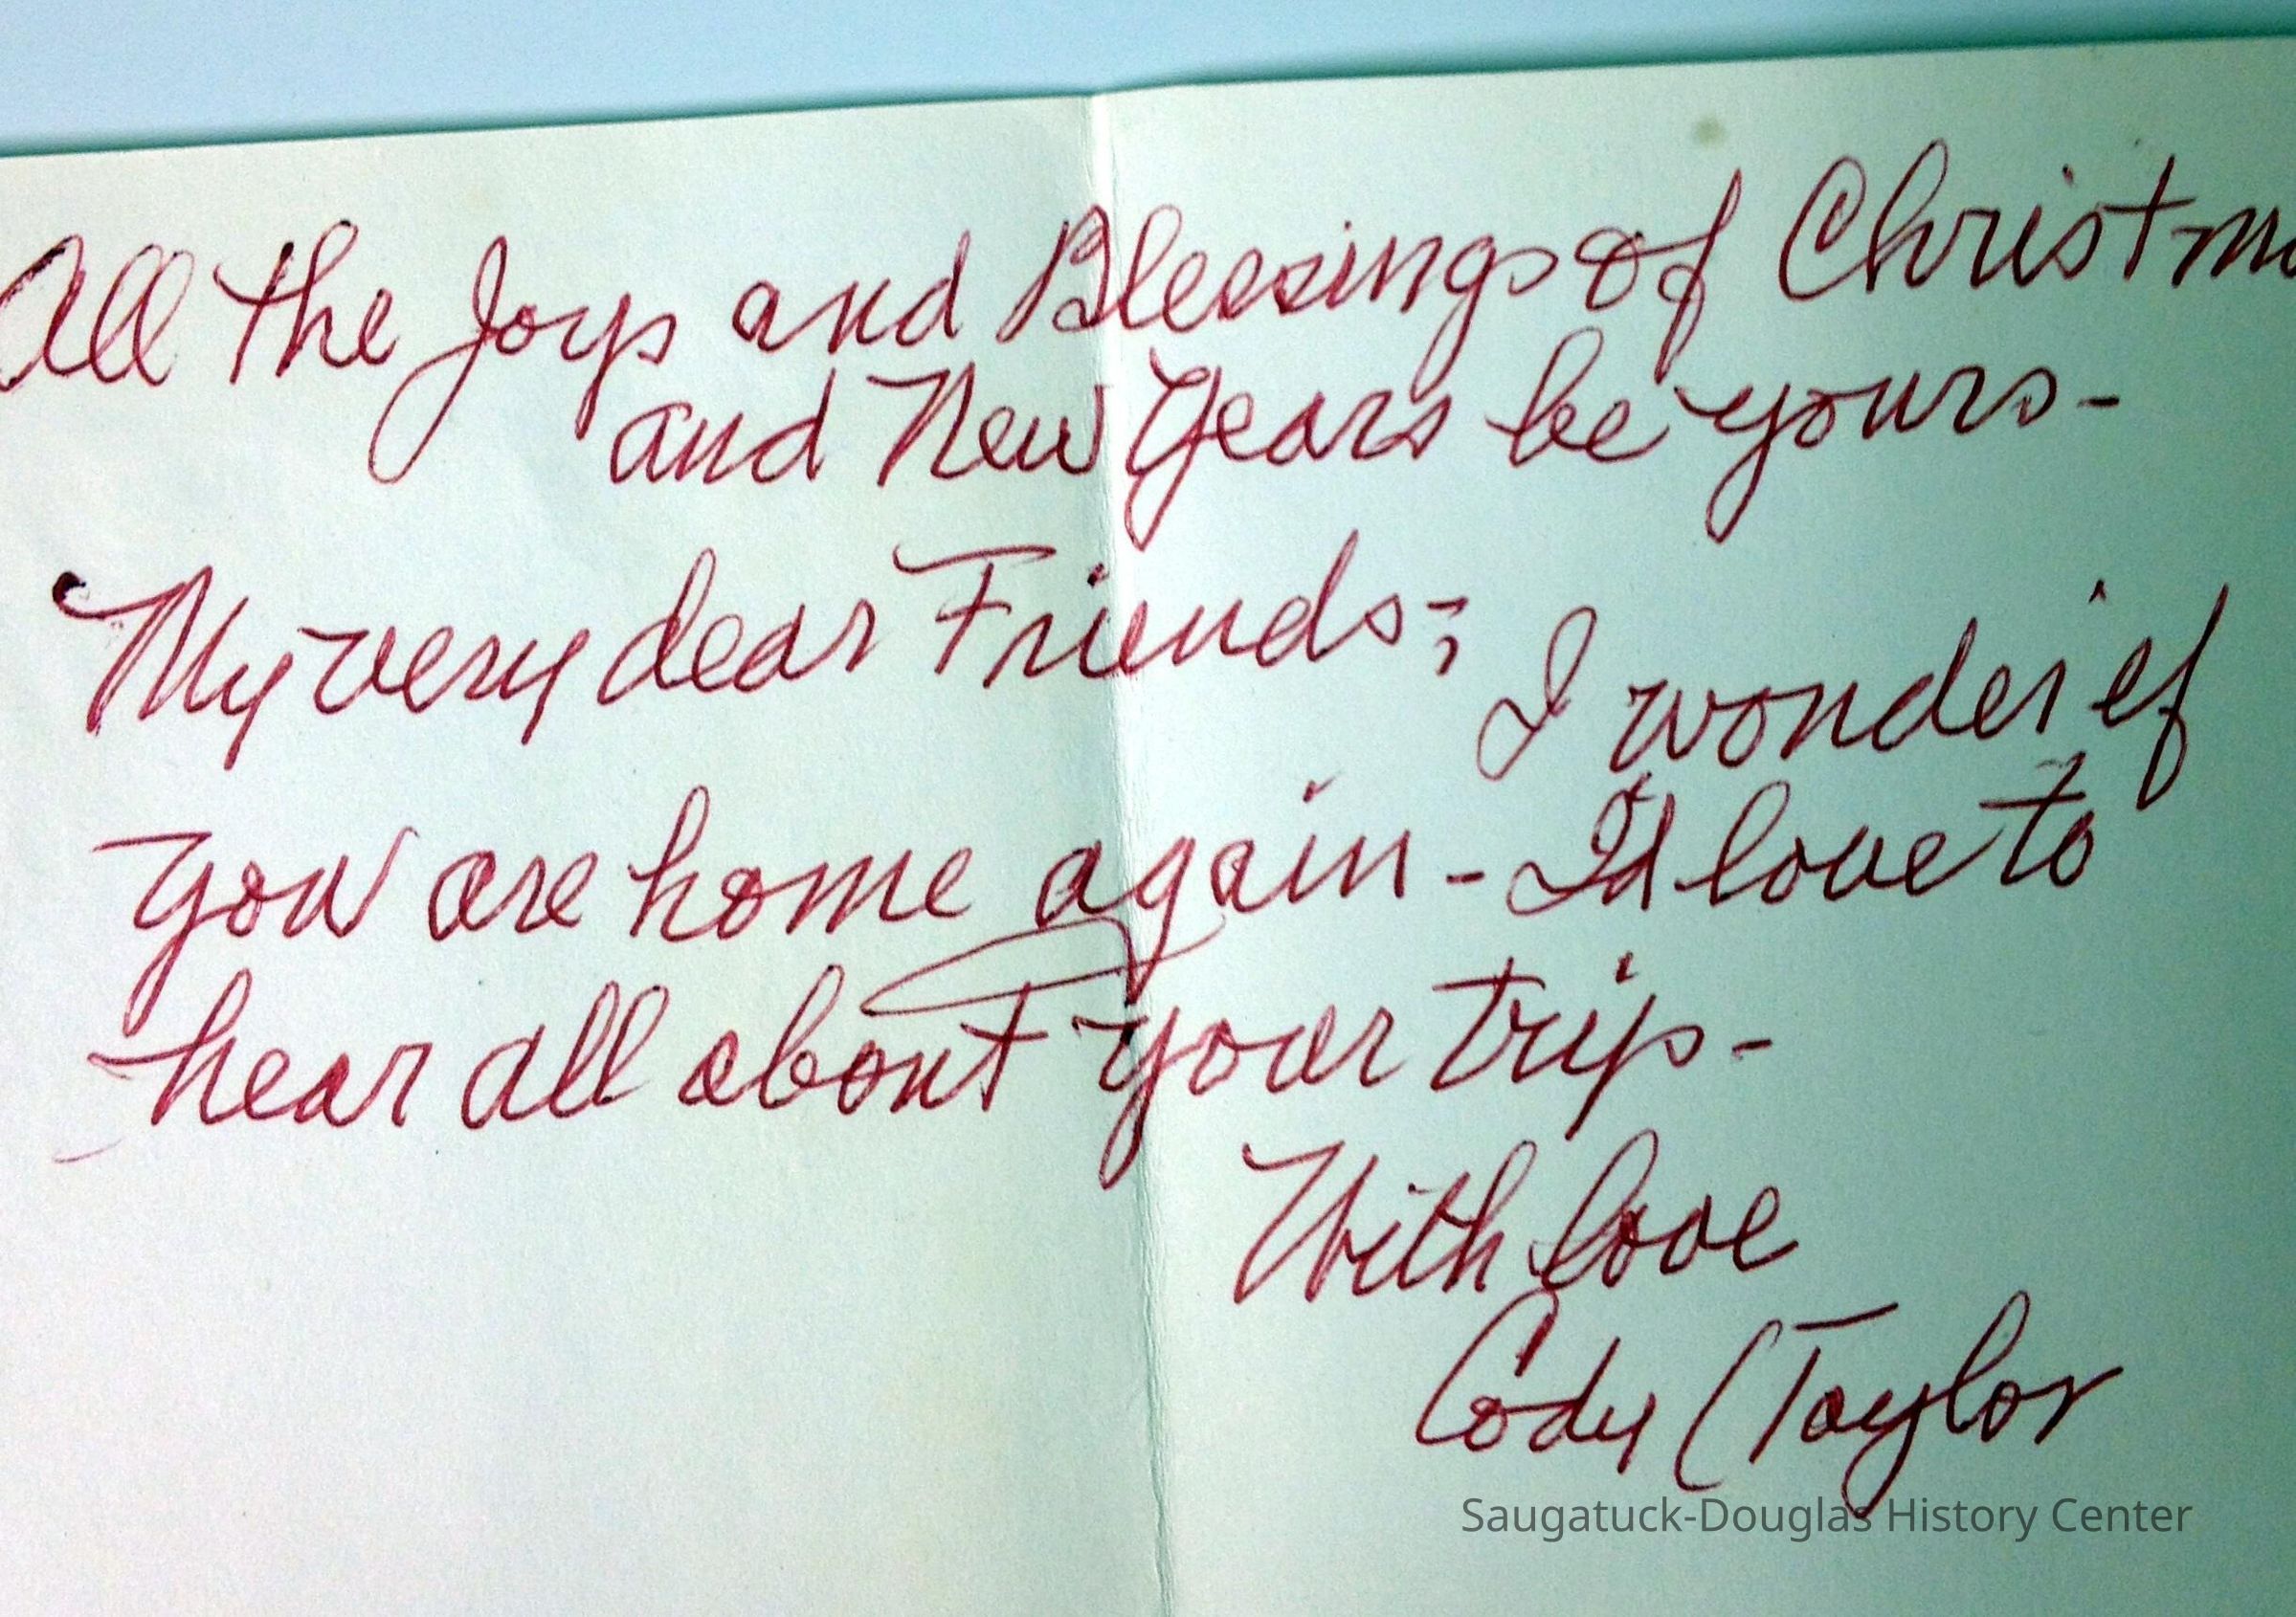 All the Joys and Blessings of Christm
and New Years be yours-
My very dear Friends-;
I wonder if
you are home again - I'd love to
hear all about your trip-
With love
Cody (Taylor
Saugatuck-Douglas History Center